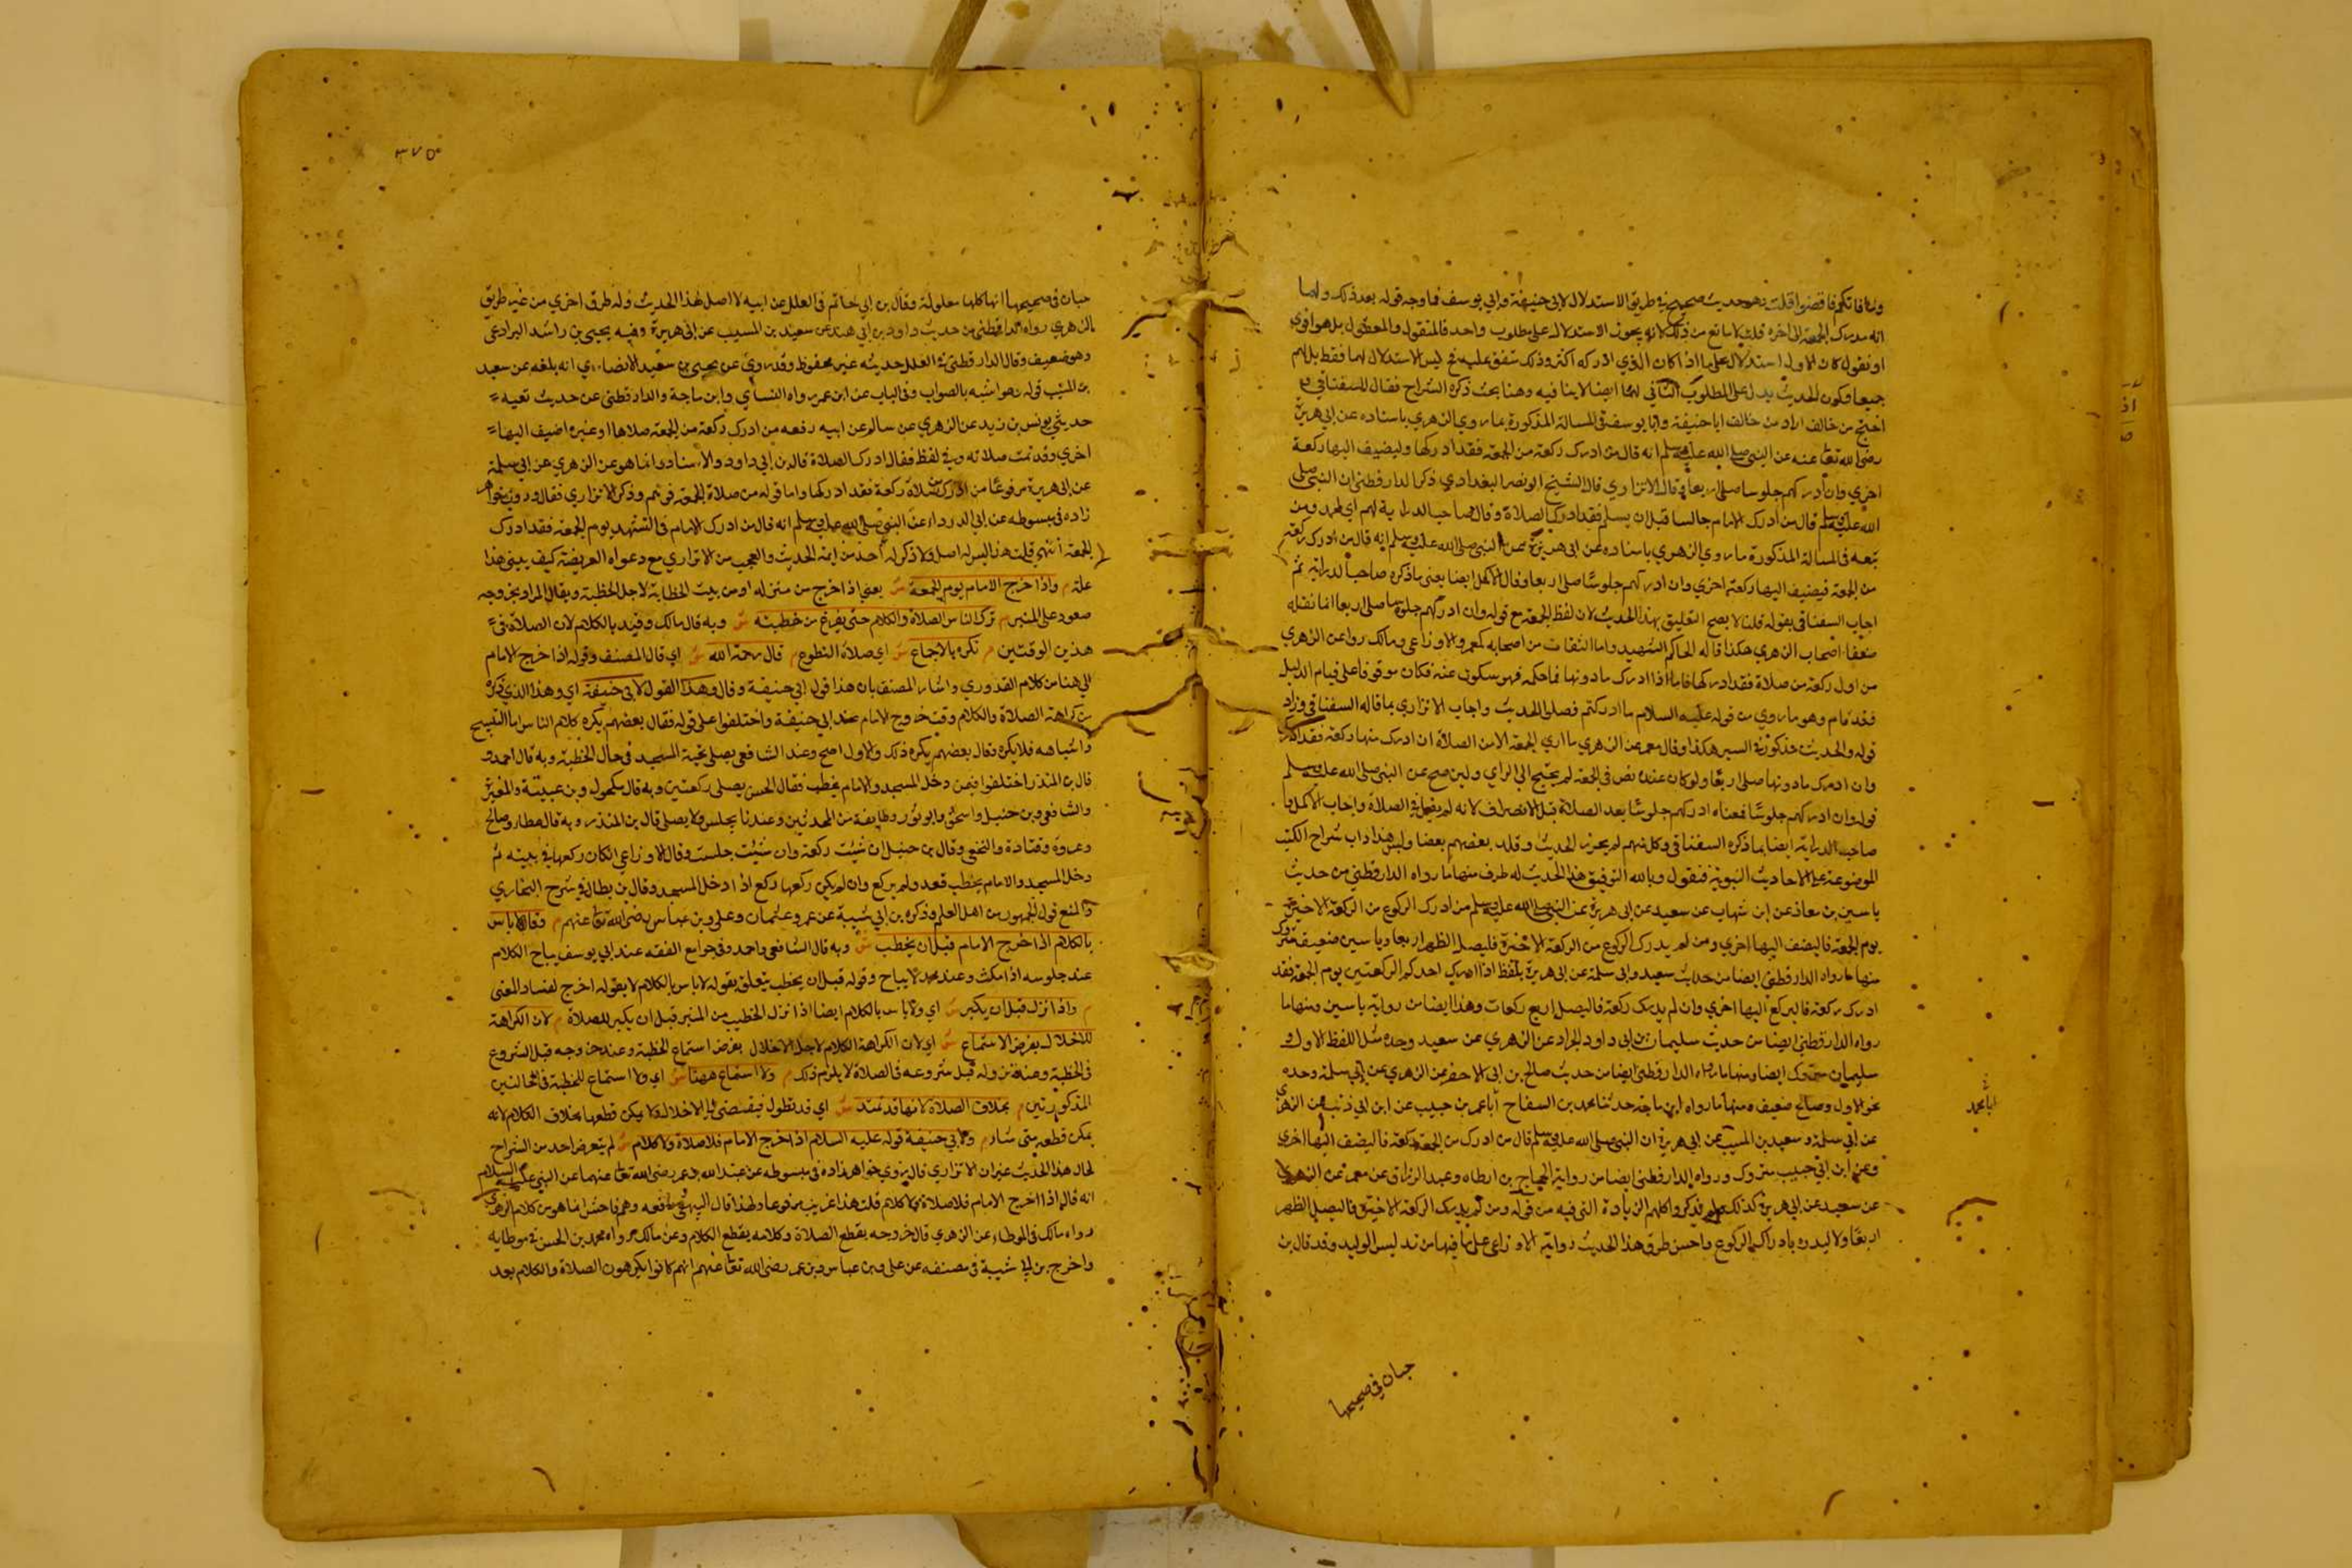 وما فاتكم فاقضوا قلت هو حديث صحيح في طريق الاستدلال لابي حنيفة وابي يوسف فما وجه قوله بعد ذلك ولهما
انه مدرك الجمعة الى اخره قلت لا مانع من ذلك لانه يجوز الاستدلال على مطلوب واحد فالمنقول والمعقول بل هو اقوى
او نقول كان الاول استدلال على ما اذا كان الذي ادركه اكثر وذلك متفق عليه فح ليس الاستدلال لهما فقط بل لهم
جميعا وكون الحديث يدل على المطلوب الثاني لهما ايضا لا ينافيه وهنا بحث ذكره الشراح فقال السغناقي
احتج من خالف اراد من خالف ابا حنيفة وابا يوسف في المسالة المذكورة بما روي الزهري باسناده عن ابي هريرة
رضي الله تعا عنه عن النبي صلى الله عليه وسلم انه قال من ادرك ركعة من الجمعة فقد ادركها وليضيف اليها ركعة
اخرى وان ادركهم جلوسا صلى اربعا وقال الاتزاري قال الشيخ ابو نصر البغدادي ذكر الدارقطني ان النبي صلى
الله عليه وسلم قال من ادرك الامام جالسا قبل ان يسلم فقد ادرك الصلاة وقال صاحب الدراية لهم اي لمحمد ومن
تبعه في المسالة المذكورة ما روي الزهري باسناده عن ابي هريرة عن النبي صلى الله عليه وسلم انه قال من ادرك ركعة
من الجمعة فيضيف اليها ركعة اخرى وان ادركهم جلوسا صلى اربعا وقال الاكمل ايضا يعني ما ذكره صاحب الدراية ثم
اجاب السغناقي بقوله قلنا لا يصح التعليق بهذا الحديث لان لفظ الجمعة مع قوله وان ادركهم جلوسا صلى اربعا انما نقله
ضعفاء اصحاب الزهري هكذا قاله الحاكم الشهيد واما الثقات من اصحابه كمعمر والاوزاعي ومالك رووا عن الزهري
من اول ركعة من صلاة فقد ادركها فاما اذا ادرك ما دونها فما حكمه فهو سكوت عنه فكان موقوفا على قيام الدليل
فقد قام وهو ما روي من قوله عليه السلام ما ادركتم فصلوا الحديث واجاب الاتزاري بما قاله السغناقي وزاد
قوله والحديث مذكور في السير هكذا وقال معمر عن الزهري ما ارى الجمعة الا من الصلاة ان ادرك منها ركعة فقد ادرك
وان ادرك ما دونها صلى اربعا ولو كان عنده نص في الجمعة لم يحتج الى الراي ولين صح عن النبي صلى الله عليه وسلم
قوله وان ادركهم جلوسا فمعناه ادركهم جلوسا بعد الصلاة قبل الانصراف لانه لم يقل في الصلاة واجاب الاكمل و
صاحب الدراية ايضا بما ذكره السغناقي وكل منهم لم يحرر الحديث وقلد بعضهم بعضا وليس هذا داب شراح الكتب
الموضوعة على الاحاديث النبوية فنقول وبالله التوفيق هذا الحديث له طرق منها ما رواه الدارقطني من حديث
ياسين بن معاذ عن ابن شهاب عن سعيد عن ابي هريرة عن النبي صلى الله عليه وسلم من ادرك الركوع من الركعة الاخيرة
يوم الجمعة فاليضف اليها اخرى ومن لم يدرك الركوع من الركعة الاخيرة فليصل الظهر اربعا وياسين ضعيف متروك
منها ما رواه الدارقطني ايضا من حديث سعيد وابي سلمة عن ابي هريرة بلفظ اذا ادرك احدكم الركعتين يوم الجمعة فقد
ادرك ركعة فاليركع اليها اخرى وان لم يدرك ركعة فاليصل اربع ركعات وهذا ايضا من رواية ياسين ومنها ما
رواه الدارقطني ايضا من حديث سليمان بن ابي داود الجراد عن الزهري عن سعيد وحده مثل اللفظ الاول و
سليمان متروك ايضا ومنها ما رواه الدارقطني ايضا من حديث صالح بن ابي الاخضر عن الزهري عن ابي سلمة وحده
نحو الاول وصالح ضعيف ومنها ما رواه ابن ماجة حدثنا محمد بن السفاح انا عمر بن حبيب عن ابن ابي ذئب عن الزهري
عن ابي سلمة وسعيد بن المسيب عن ابي هريرة ان النبي صلى الله عليه وسلم قال من ادرك من الجمعة ركعة فاليضف اليها اخرى
وعن ابن ابي حبيب متروك ورواه الدارقطني ايضا من رواية الحجاج بن ارطاه وعبد الرزاق عن معمر عن الزهري
عن سعيد عن ابي هريرة كذلك ولم يذكروا كلهم الزيادة التي فيه من قوله ومن لم يدرك الركعة الاخيرة فاليصل الظهر
اربعا ولا ليدره بادراك الركوع واحسن طرق هذا الحديث رواية الاوزاعي على ما فيها من تدليس الوليد وقد قال بن
حبان في صحيحها
٣٧٥
حبان في صحيحها انها كلها معلولة وقال بن ابي حاتم في العلل عن ابيه لا اصل لهذا الحديث وله طرق اخرى من غير طريق
الزهري رواه الدارقطني من حديث داود بن ابي هند عن سعيد بن المسيب عن ابي هريرة وفيه يحيى بن راشد البراد عن
وهو ضعيف وقال الدارقطني في العلل حديثه غير محفوظ وقد روي عن يحيى بن سعيد الانصاري انه بلغه عن سعيد
بن المسيب قوله وهو اشبه بالصواب وفي الباب عن ابن عمر رواه النسائي وابن ماجة والدارقطني عن حديث بقية
حدثني يونس بن يزيد عن الزهري عن سالم عن ابيه رفعه من ادرك ركعة من الجمعة صلاها او غيره اضيف اليها
اخرى وقد تمت صلاته وفي لفظ فقال ادرك الصلاة قال بن ابي داود والاسناد وانما هو عن الزهري عن ابي سلمة
عن ابي هريرة مرفوعا من ادرك من صلاة ركعة فقد ادركها واما قوله من صلاة الجمعة فوهم وذكر الاتزاري فقال وروي خواهر
زاده في مبسوطه عن ابي الدرداء عن النبي صلى الله عليه وسلم انه قال من ادرك الامام في التشهد يوم الجمعة فقد ادرك
الجمعة انتهى قلت هذا ليس له اصل ولا ذكر له احد من ايمة الحديث والعجب من الاتزاري مع دعواه العريضة كيف يبني هذا
علة م واذا خرج الامام يوم الجمعة ش يعني اذا خرج من منزله او من بيت الخطابة لاجل الخطبة ويقال المراد بخروجه
صعود على المنبر م ترك الناس الصلاة والكلام حتى يفرغ من خطبته ش وبه قال مالك وقيد بالكلام لان الصلاة في
هذين الوقتين م تكره بالاجماع ش اي صلاة التطوع م قال رحمة الله ش اي قال المصنف وقوله اذا خرج الامام
الى هنا من كلام القدوري واشار المصنف بان هذا قول ابي حنيفة وقال وهذا القول لابي حنيفة اي وهذا الذي ذكره
من كراهة الصلاة والكلام وقت خروج الامام عند ابي حنيفة واختلفوا على قوله فقال بعضهم يكره كلام الناس اما التسبيح
واشباهه فلا يكره وقال بعضهم يكره ذلك والاول اصح وعند الشافعي يصلي تحية المسجد في حال الخطبة وبه قال احمد و
قال بن المنذر اختلفوا فيمن دخل المسجد والامام يخطب فقال الحسن يصلي ركعتين وبه قال مكحول وبن عيينة والمغيرة
والشافعي وبن حنبل واسحق وابو ثور وطايفة من المحدثين وعندنا يجلس ولا يصلي قال بن المنذر وبه قال عطار وصالح
وعروة وقتادة والنخعي وقال بن حنبل ان شيت ركعة وان شيت جلست وقال الاوزاعي ان كان ركعها في بيته ثم
دخل المسجد والامام يخطب قعد ولم يركع وان لم يكن ركعها ركع اذا دخل المسجد وقال بن بطال في شرح البخاري
والمنع قول الجمهور من اهل العلم وذكره بن ابي شيبة عن عمر وعثمان وعلي وبن عباس رضي الله تعا عنهم م وقالا لا باس
بالكلام اذا خرج الامام قبل ان يخطب ش وبه قال الشافعي واحمد وفي جوامع الفقه عند ابي يوسف يباح الكلام
عند جلوسه اذا سكت وعند محمد لا يباح وقوله قبل ان يخطب يتعلق بقوله لا باس بالكلام لا بقوله اخرج لفساد المعنى
م واذا نزل قبل ان يكبر ش اي ولا باس بالكلام ايضا اذا نزل الخطيب من المنبر قبل ان يكبر للصلاة م لان الكراهة
للاخلال بفرض الاستماع ش اي لان الكراهة الكلام لاجل الاخلال بفرض استماع الخطبة وعند خروجه قبل الشروع
في الخطبة وعند نزوله قبل شروعه في الصلاة لا يلزم ذلك م ولا استماع ههنا ش اي ولا استماع للخطبة في الحالتين
المذكورتين م بخلاف الصلاة لانها قد تمتد ش اي قد تطول فيفضي الى الاخلال ولا يمكن قطعها بخلاف الكلام لانه
يمكن قطعه متى شار م ولابي حنيفة قوله عليه السلام اذا خرج الامام فلا صلاة ولا كلام ش لم يتعرض احد من الشراح
لحال هذا الحديث غير ان الاتزاري قال روي خواهر زاده في مبسوطه عن عبد الله بن عمر رضي الله تعا عنهما عن النبي عليه السلام
انه قال اذا اخرج الامام فلا صلاة ولا كلام قلت هذا غريب مرفوعا ولهذا قال البيهقي رفعه وهم فاحش انما هو من كلام الزهري
رواه مالك في الموطاء عن الزهري قال خروجه يقطع الصلاة وكلامه يقطع الكلام وعن مالك رواه محمد بن الحسن في موطايه
واخرج بن ابي شيبة في مصنفه عن علي وبن عباس وبن عمر رضي الله تعا عنهم انهم كانوا يكرهون الصلاة والكلام بعد